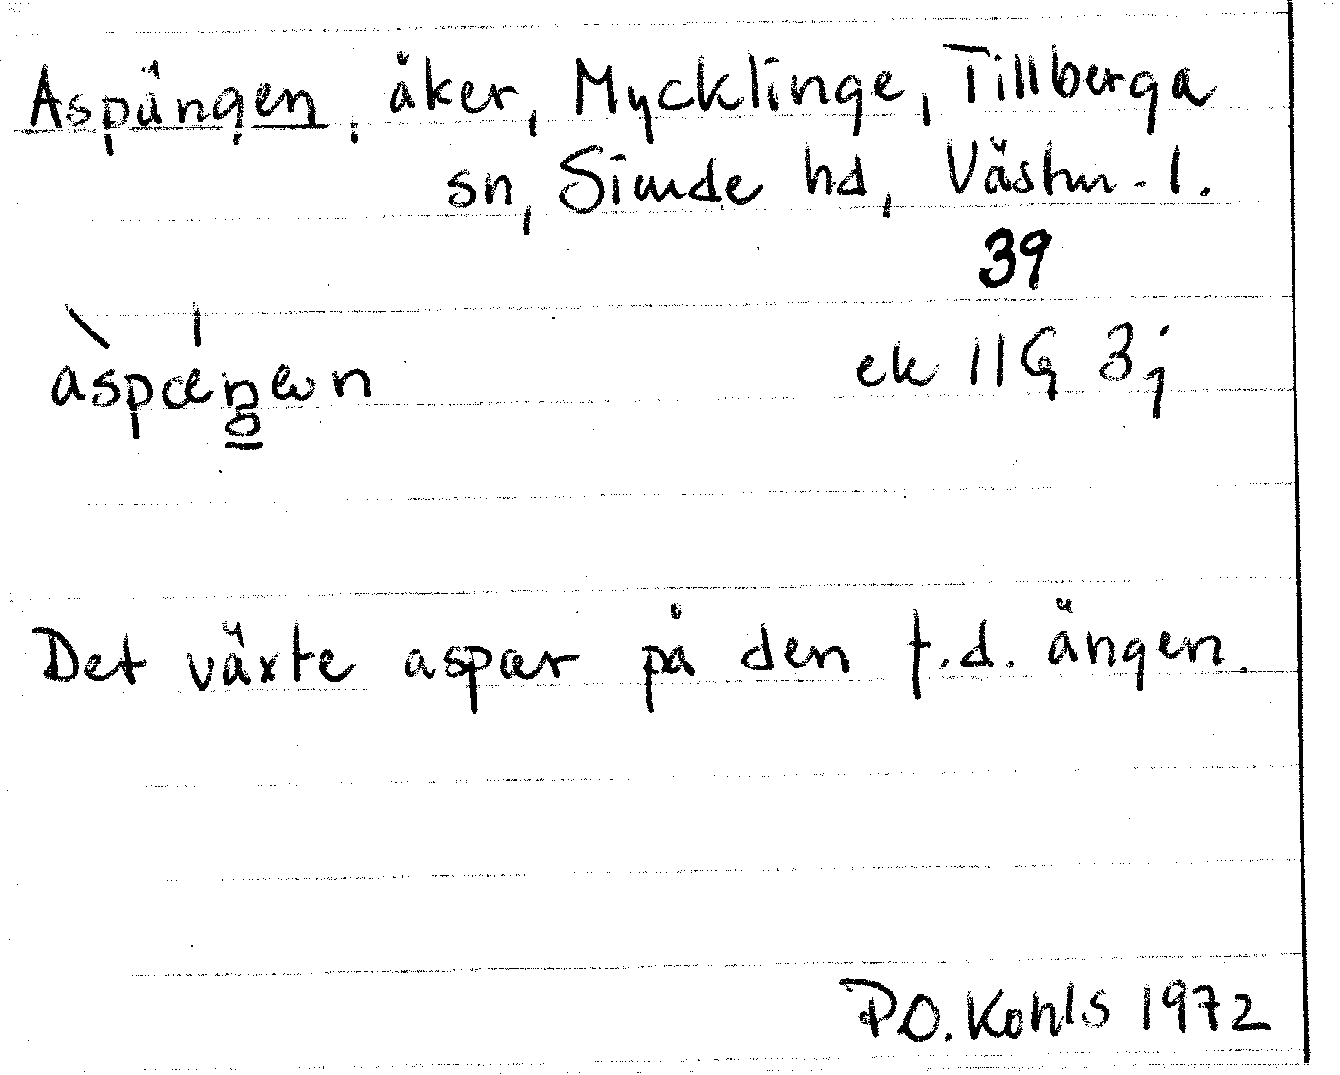 Aspängen, åker, Mycklinge, Tillberga
sn, Siende hd, Västm. l.
39
aspæŋən
ek 11G 3j
Det växte aspar på den f.d. ängen.
P.O. Kohls 1972